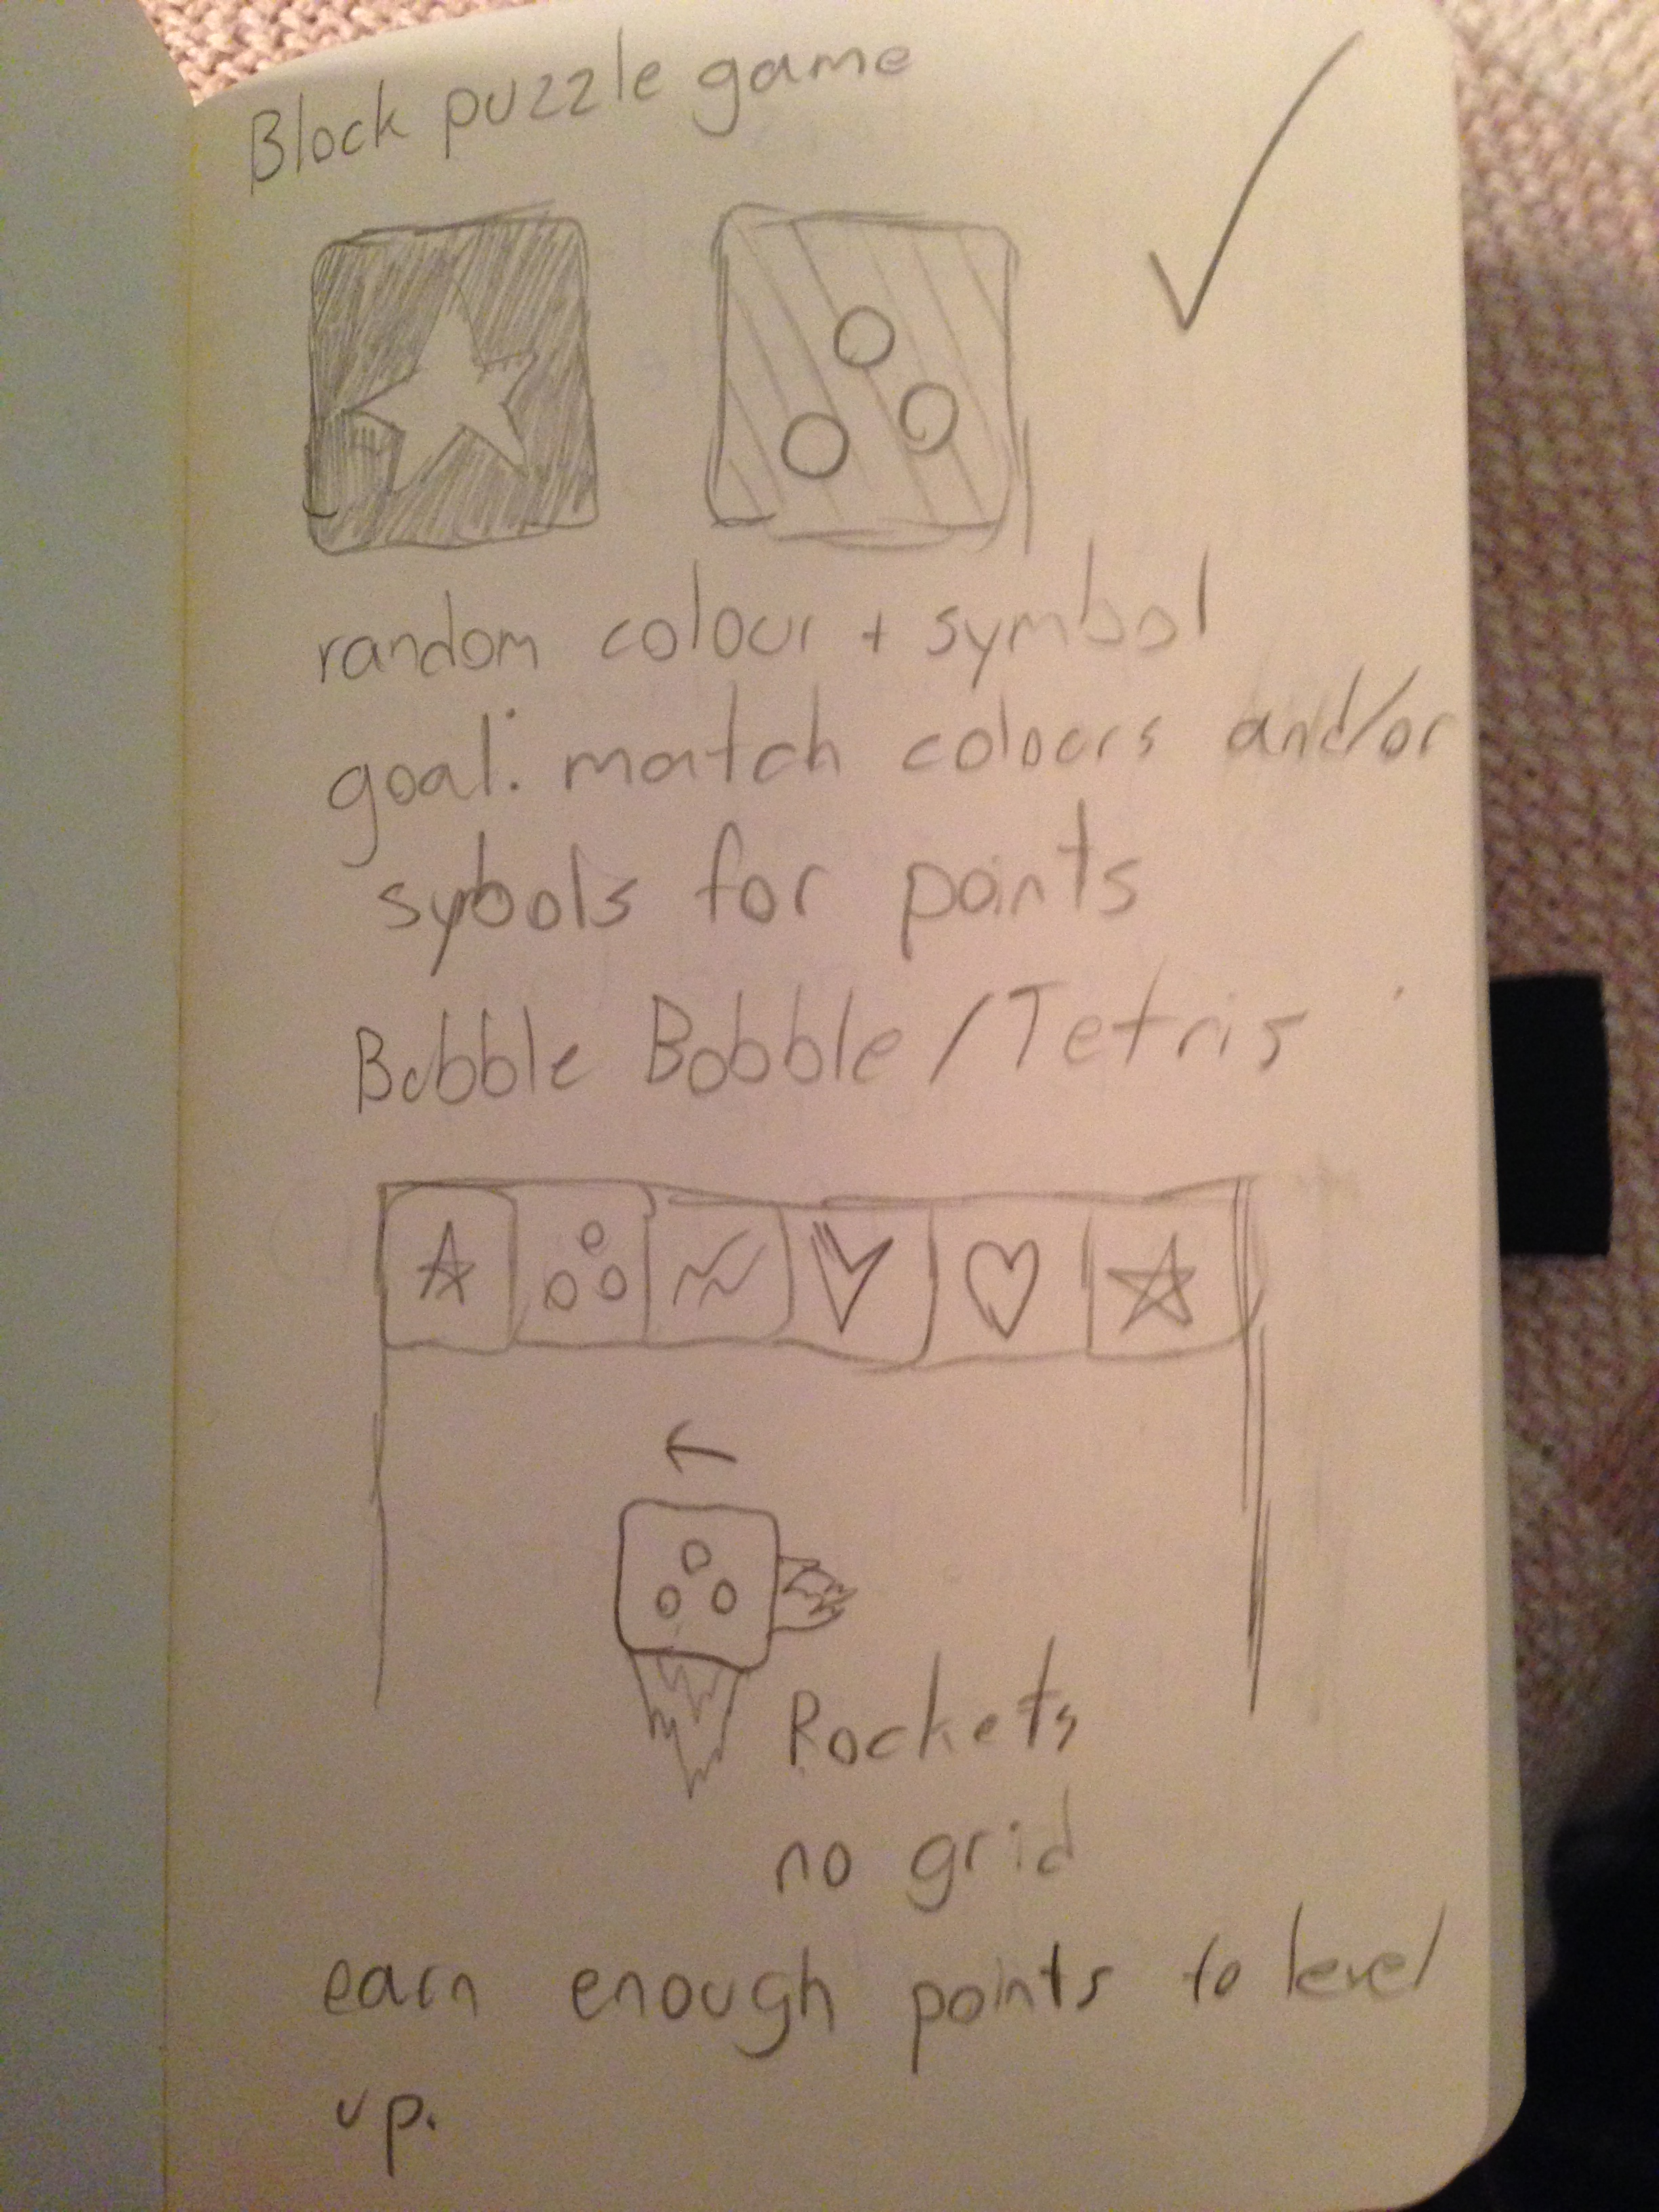 Block puzzle game
random colour + symbol
goal: match colours and/or
sybols for points
Bubble Bobble/Tetris
Rockets
no grid
earn enough points to level
up.